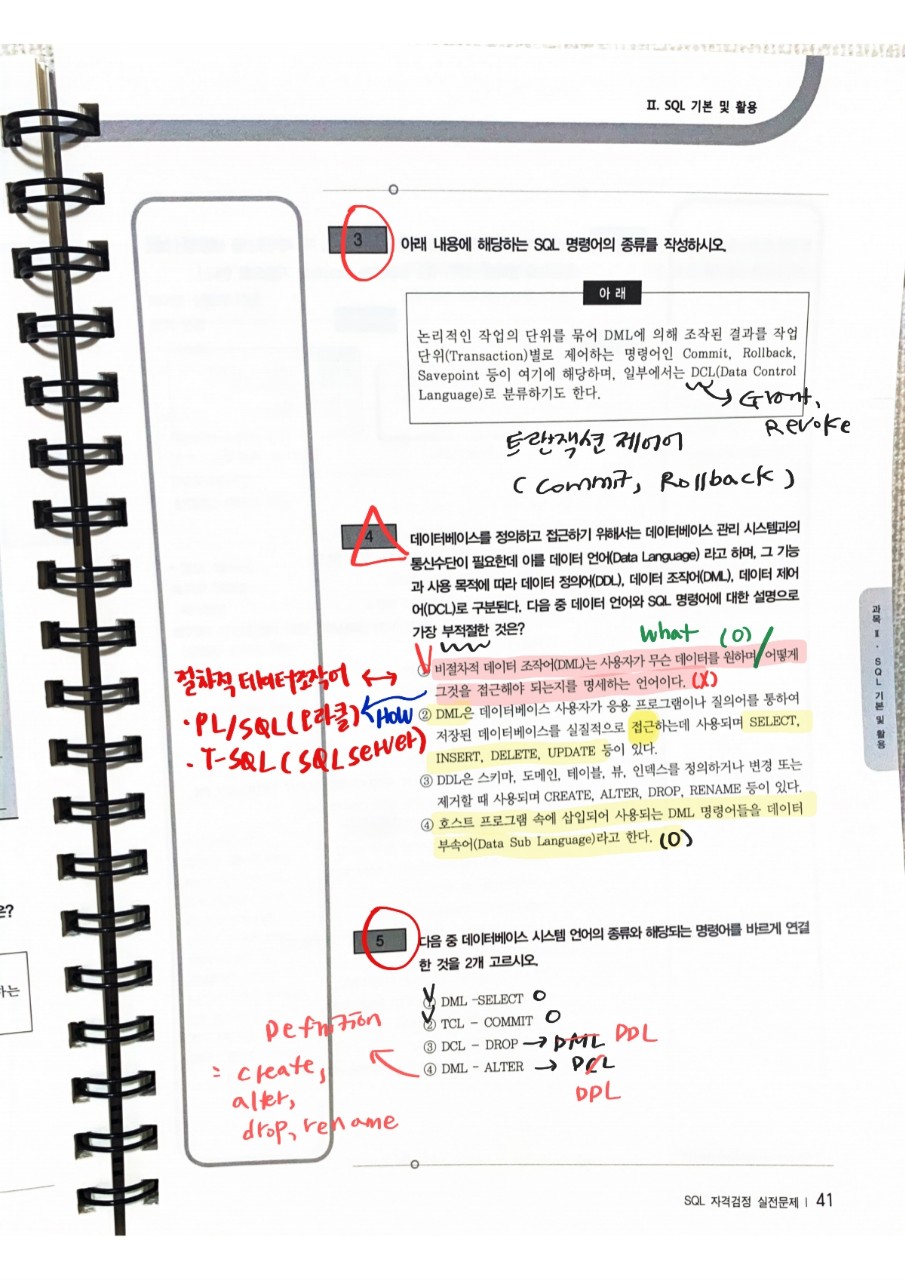 II. SQL 기본 및 활용
3 아래 내용에 해당하는 SQL 명령어의 종류를 작성하시오.
아 래
논리적인 작업의 단위를 묶어 DML에 의해 조작된 결과를 작업
단위(Transaction)별로 제어하는 명령어인 Commit, Rollback,
Savepoint 등이 여기에 해당하며, 일부에서는 DCL(Data Control
Language)로 분류하기도 한다.
Grant,
Revoke
트랜잭션 제어어
(Commit, Rollback)
4 데이터베이스를 정의하고 접근하기 위해서는 데이터베이스 관리 시스템과의
통신수단이 필요한데 이를 데이터 언어(Data Language) 라고 하며, 그 기능
과 사용 목적에 따라 데이터 정의어(DDL), 데이터 조작어(DML), 데이터 제어
어(DCL)로 구분된다. 다음 중 데이터 언어와 SQL 명령어에 대한 설명으로
가장 부적절한 것은?
What (O)
① 비절차적 데이터 조작어(DML)는 사용자가 무슨 데이터를 원하며, 어떻게
그것을 접근해야 되는지를 명세하는 언어이다. (X)
절차적 데이터조작어 ↔
· PL/SQL(오라클) ← HOW
· T-SQL (SQL server)
② DML은 데이터베이스 사용자가 응용 프로그램이나 질의어를 통하여
저장된 데이터베이스를 실질적으로 접근하는데 사용되며 SELECT,
INSERT, DELETE, UPDATE 등이 있다.
③ DDL은 스키마, 도메인, 테이블, 뷰, 인덱스를 정의하거나 변경 또는
제거할 때 사용되며 CREATE, ALTER, DROP, RENAME 등이 있다.
④ 호스트 프로그램 속에 삽입되어 사용되는 DML 명령어들을 데이터
부속어(Data Sub Language)라고 한다. (O)
과목 II · SQL 기본 및 활용
은?
하는
5 다음 중 데이터베이스 시스템 언어의 종류와 해당되는 명령어를 바르게 연결
한 것을 2개 고르시오.
① DML -SELECT O
② TCL - COMMIT O
③ DCL - DROP → DML DDL
④ DML - ALTER → DCL
DDL
Definition
= create,
alter,
drop, rename
SQL 자격검정 실전문제 | 41